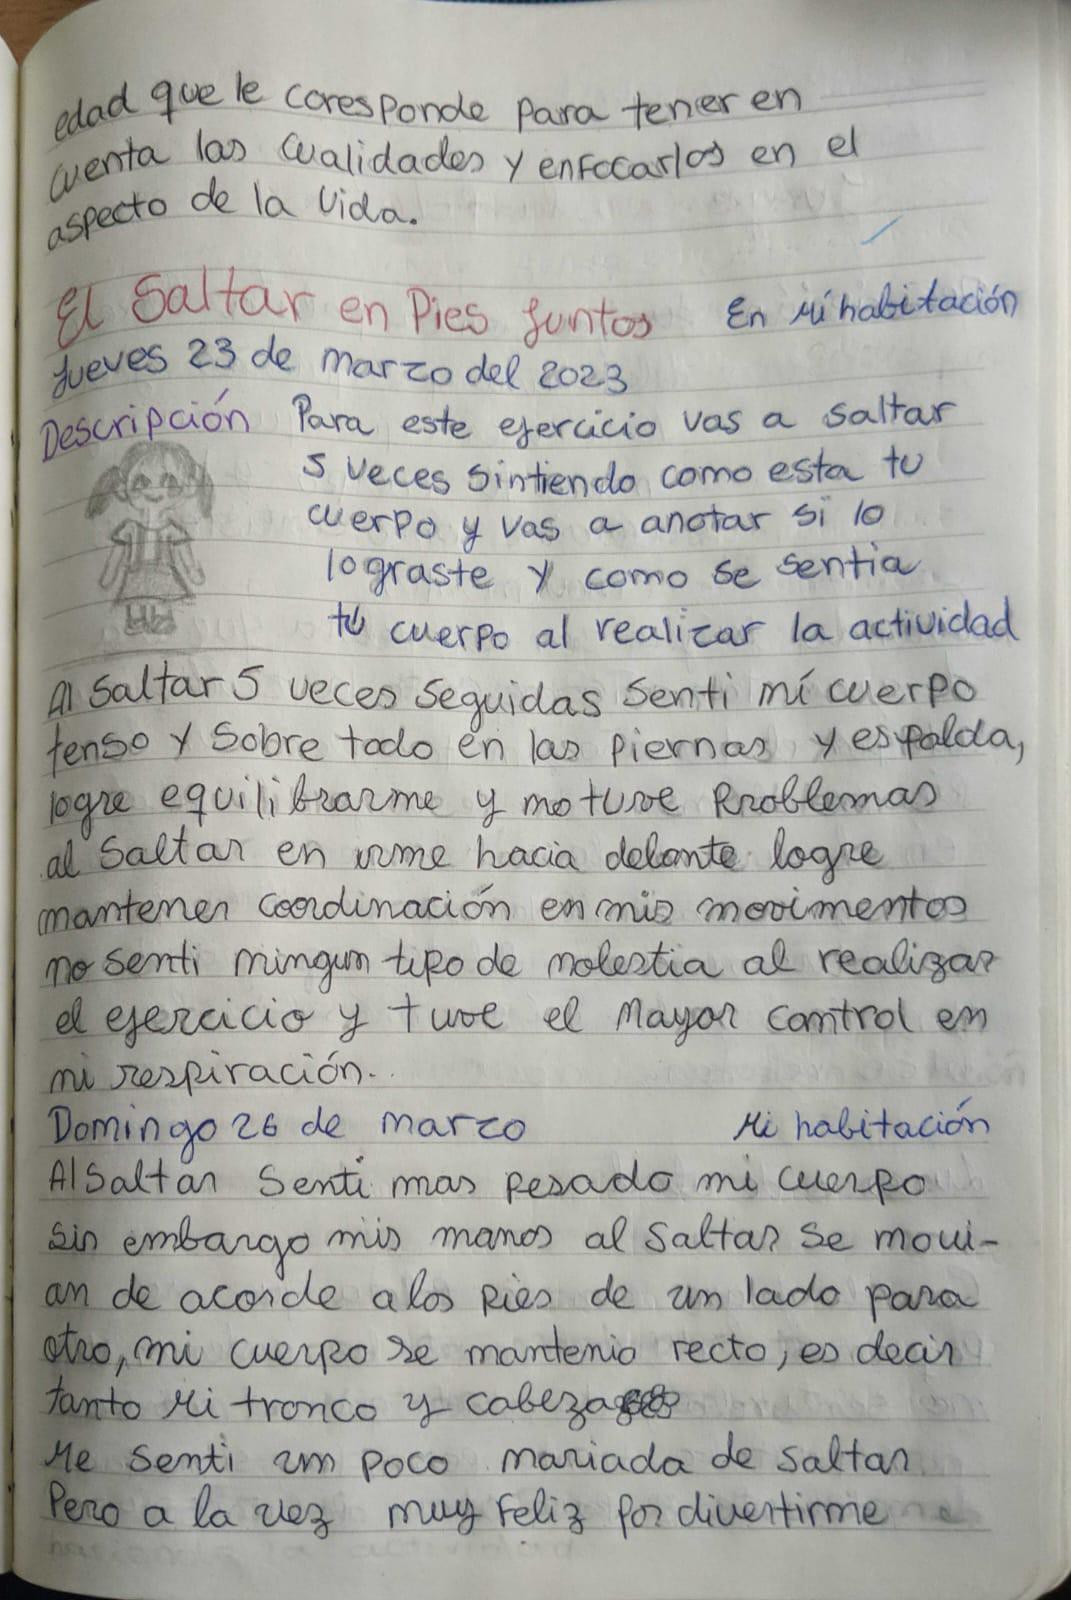 edad que le coresponde para tener en
cuenta las cualidades y enfocarlos en el
aspecto de la vida.
El Saltar en Pies Juntos En Mi habitación
Jueves 23 de marzo del 2023
Descripción Para este ejercicio vas a saltar
5 veces sintiendo como esta tu
cuerpo y vas a anotar si lo
lograste y como se sentia
tú cuerpo al realizar la actividad
Al Saltar 5 veces seguidas Senti mí cuerpo
tenso y Sobre todo en las piernas y espalda,
logre equilibrarme y no tuve Problemas
al Saltar en irme hacia delante logre
mantener coordinación en mis movimentos
no senti ningun tipo de molestia al realizar
el ejercicio y tuve el Mayor control en
mi respiración..
Domingo 26 de marzo Mi habitación
Al Saltar Senti mas pesado mi cuerpo
sin embargo mis manos al Saltar Se movi-
an de acorde a los pies de un lado para
otro, mi cuerpo se mantenio recto, es decir
tanto Mi tronco y cabeza
Me Senti un poco mariada de Saltar
Pero a la vez muy Feliz por divertirme